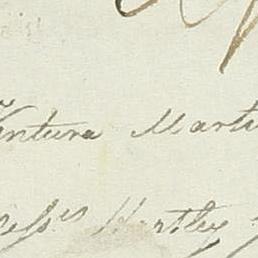 Ventura Marti
ess^rs Hartley